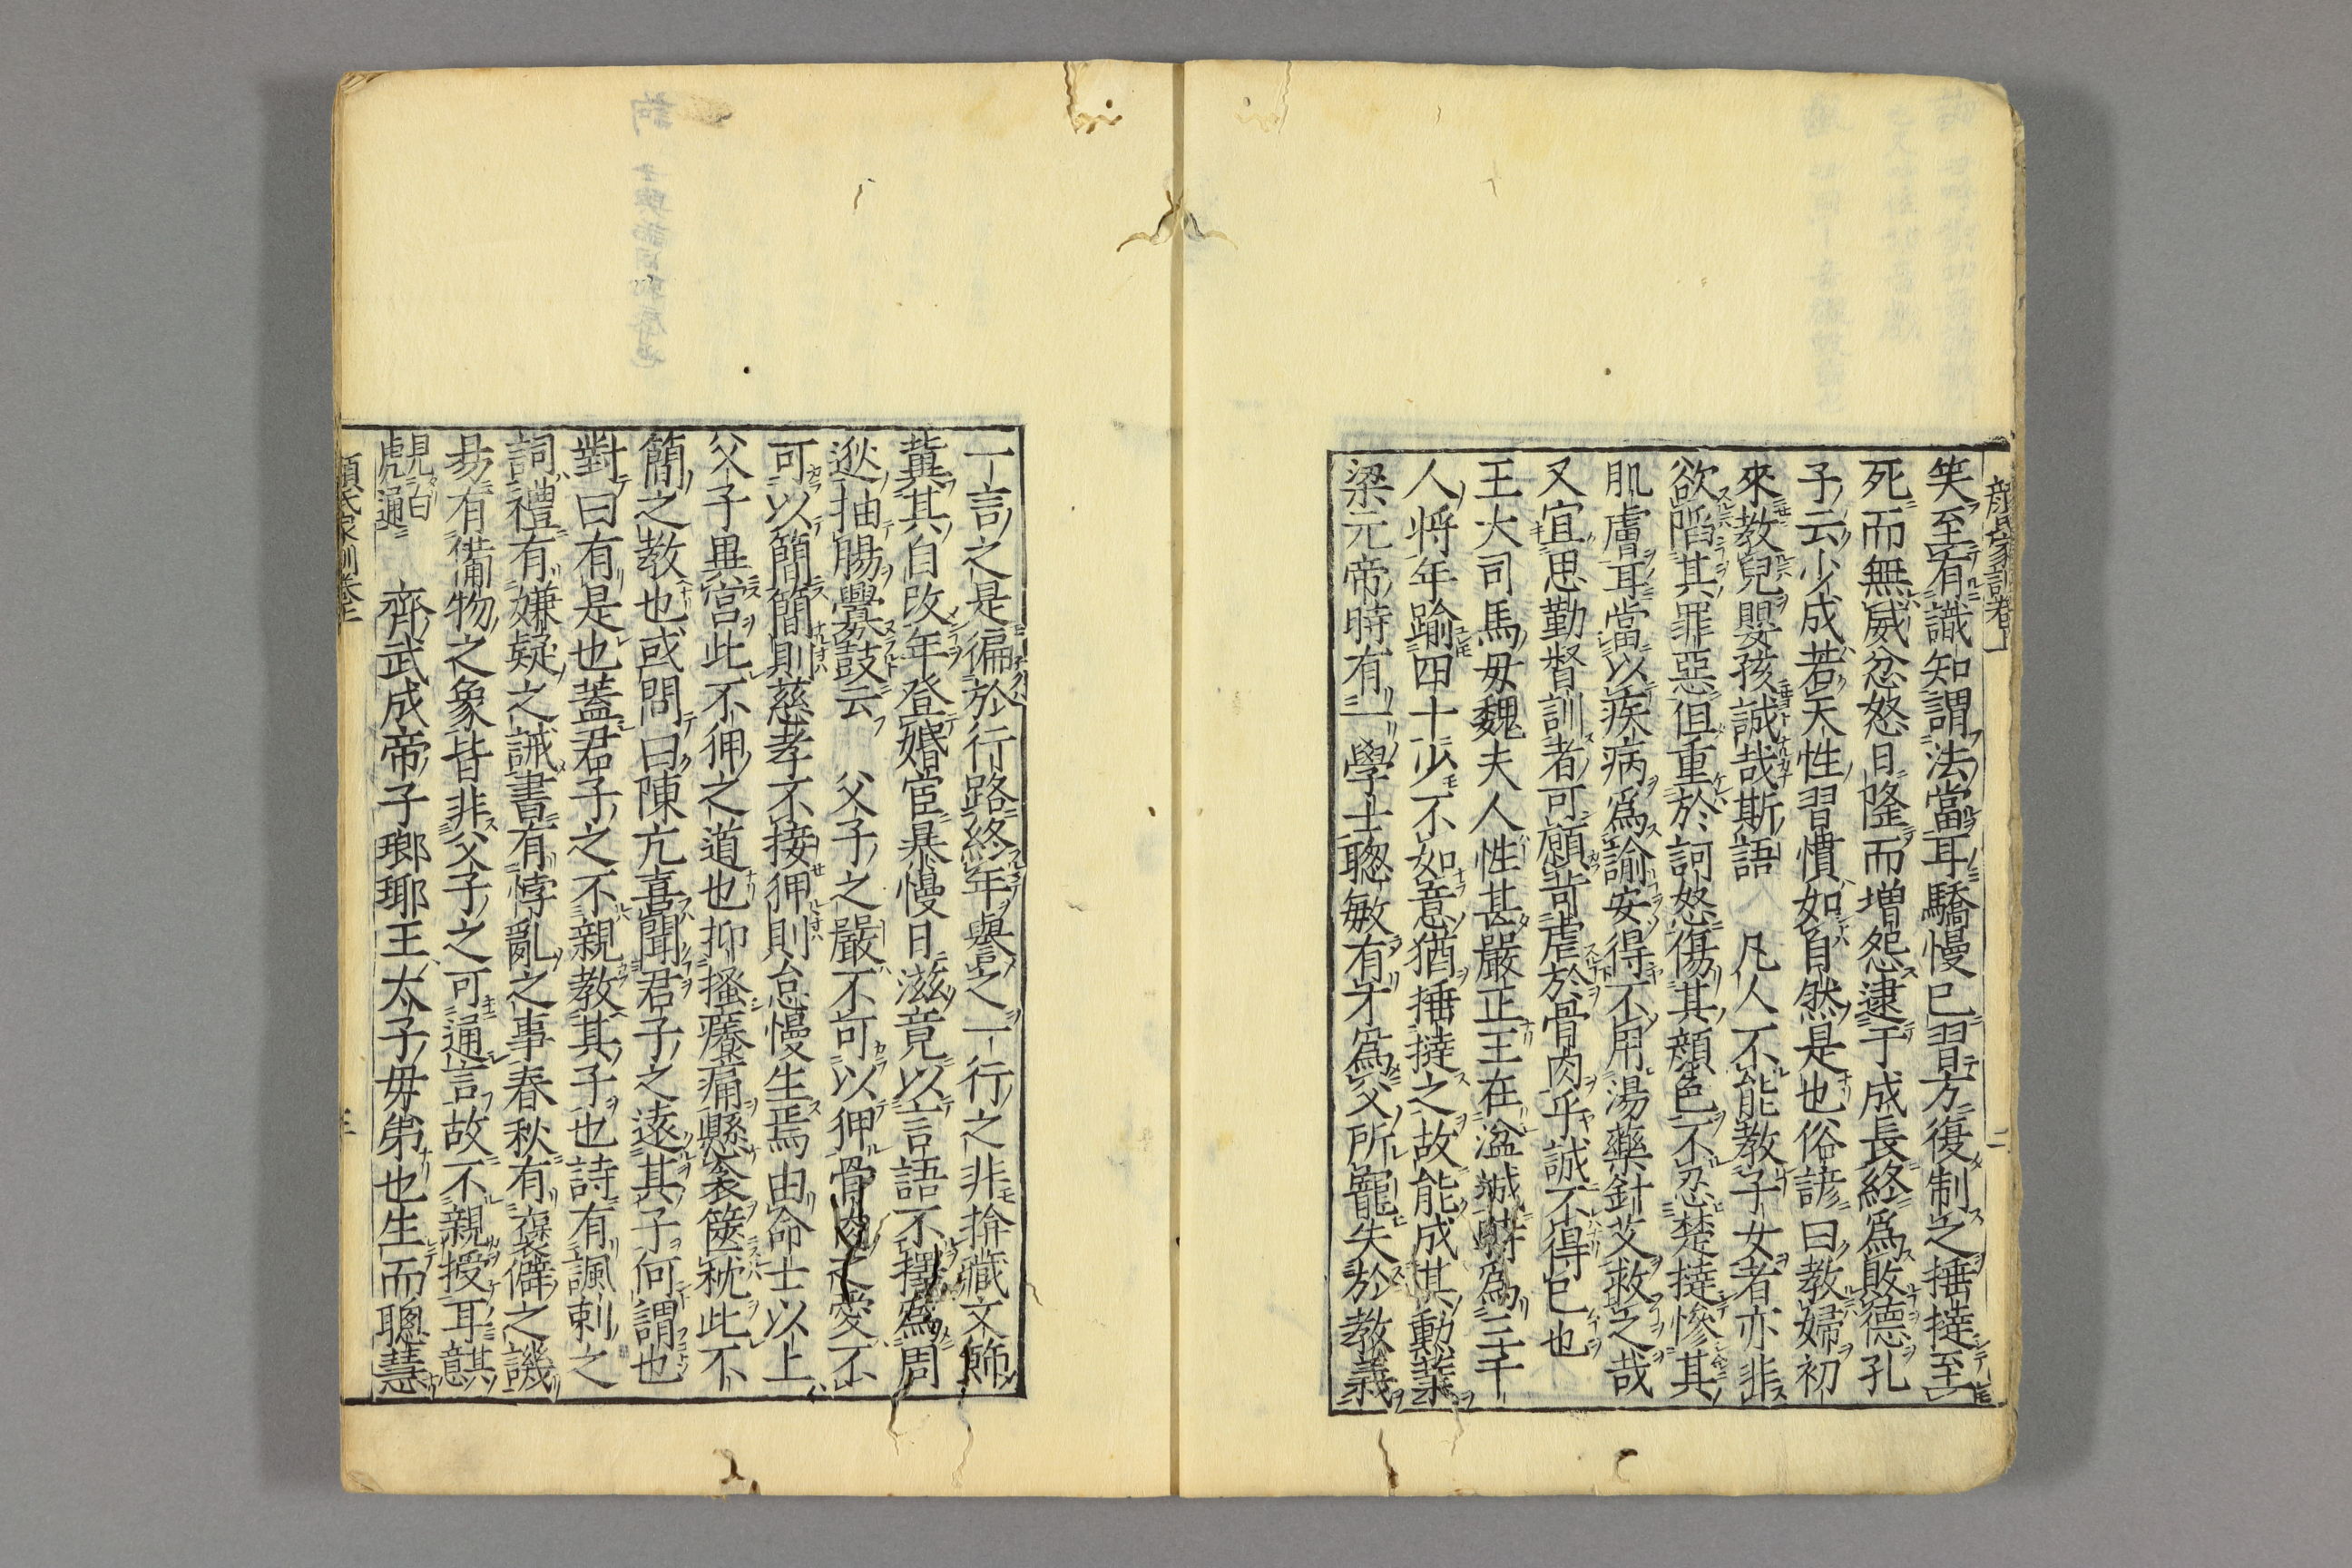 顔氏家訓卷上 二
笑至有識知謂法當耳驕慢已習方復制之捶撻至
死而無威忿怒日隆而増怨逮于成長終為敗德孔
子云少成若天性習慣如自然是也俗諺曰教婦初
來教兒嬰孩誠哉斯語 凡人不能教子女者亦非
欲陷其罪惡但重於訶怒傷其顏色不忍楚撻慘其
肌膚耳當以疾病為諭安得不用湯藥針艾救之哉
又宜思勤督訓者可願苛虐於骨肉乎誠不得已也
王大司馬母魏夫人性甚嚴正王在湓城時為三千
人將年踰四十少不如意猶捶撻之故能成其勲業
梁元帝時有一學士聰敏有才為父所寵失於教義
一言之是徧於行路終年譽之一行之非揜藏文飾
冀其自改年登婚宦暴慢日滋竟以言語不擇為周
逖抽腸釁鼓云 父子之嚴不可以狎骨肉之愛不
可以簡簡則慈孝不接狎則怠慢生焉由命士以上
父子異宮此不狎之道也抑搔癢痛懸衾篋枕此不
簡之教也或問曰陳亢喜聞君子之遠其子何謂也
對曰有是也蓋君子之不親教其子也詩有諷刺之
詞禮有嫌疑之誡書有悖亂之事春秋有衺僻之譏
易有備物之象皆非父子之可通言故不親授耳其意
見白
虎通 齊武成帝子瑯琊王太子母弟也生而聰慧
顔氏家訓卷上 三